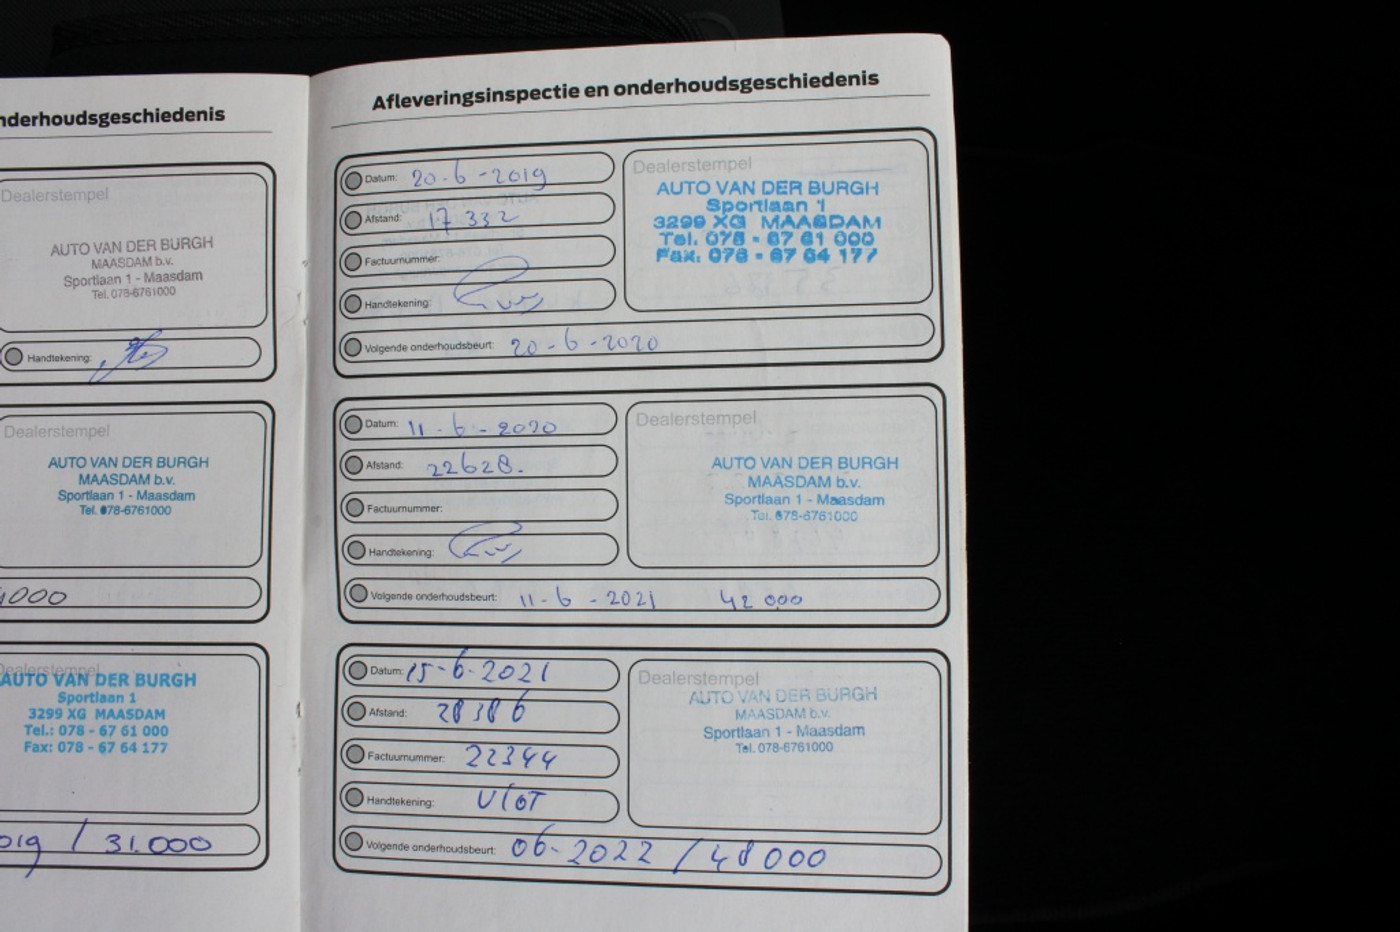 nderhoudsgeschiedenis
Dealerstempel
AUTO VAN DER BURGH
MAASDAM b.v.
Sportlaan 1 - Maasdam
Tel. 078-6761000
Handtekening:
Dealerstempel
AUTO VAN DER BURGH
MAASDAM b.v.
Sportlaan 1 - Maasdam
Tel. 078-6761000
000
Dealerstempel
AUTO VAN DER BURGH
Sportlaan 1
3299 XG MAASDAM
Tel.: 078 - 67 61 000
Fax: 078 - 67 64 177
019 / 31.000
Afleveringsinspectie en onderhoudsgeschiedenis
Datum: 20-6-2019
Afstand: 17 332
Factuurnummer:
Handtekening:
Volgende onderhoudsbeurt: 20-6-2020
Dealerstempel
AUTO VAN DER BURGH
Sportlaan 1
3299 XG MAASDAM
Tel. 078 - 67 61 000
Fax: 078 - 67 64 177
Datum: 11-6-2020
Afstand: 22628.
Factuurnummer:
Handtekening:
Volgende onderhoudsbeurt: 11-6-2021 42 000
Dealerstempel
AUTO VAN DER BURGH
MAASDAM b.v.
Sportlaan 1 - Maasdam
Tel. 078-6761000
Datum: 15-6-2021
Afstand: 28386
Factuurnummer: 22344
Handtekening: Vlot
Volgende onderhoudsbeurt: 06-2022 / 48000
Dealerstempel
AUTO VAN DER BURGH
MAASDAM b.v.
Sportlaan 1 - Maasdam
Tel. 078-6761000